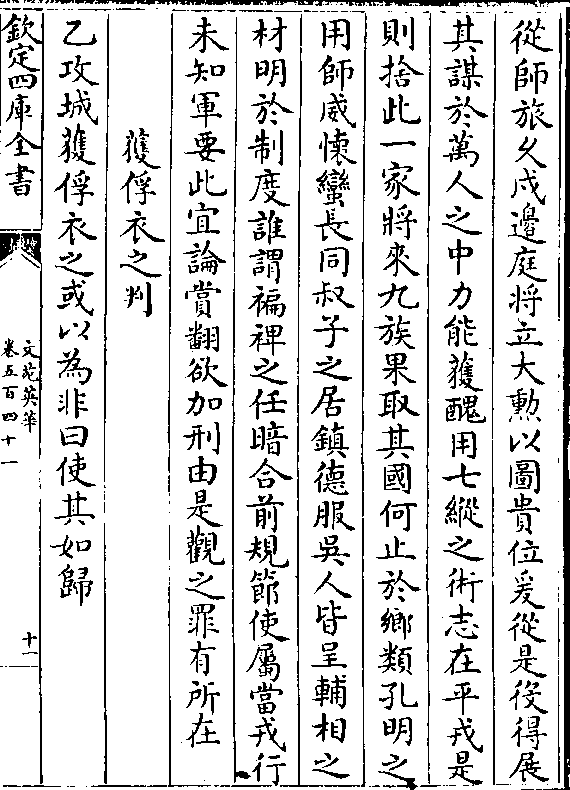 從師旅久戍邊庭將立大勲以圖貴位爰從是役得展
其謀於萬人之中力能獲醜用七縱之術志在平戎是
則捨此一家將來九族果取其國何止於鄉類孔明之
用師威懷蠻長同叔子之居鎮德服吳人皆呈輔相之
材明於制度誰謂褊裨之任暗合前規節使屬當戎行
未知軍要此宜論賞翻欲加刑由是觀之罪有所在
獲俘衣之判
乙攻城獲俘衣之或以為非曰使其如歸
欽定四庫全書
文苑英華
卷五百四十一
十一